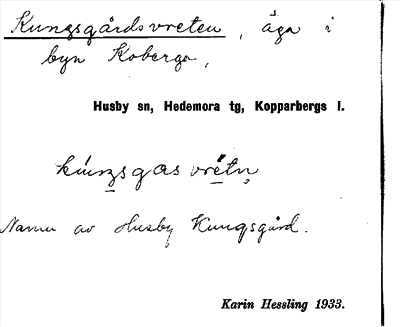 Kungsgårdsvreten, äga i
byn Koberga,
Husby sn, Hedemora tg, Kopparbergs l.
Namn av Husby Kungsgård.
Karin Hessling 1933.